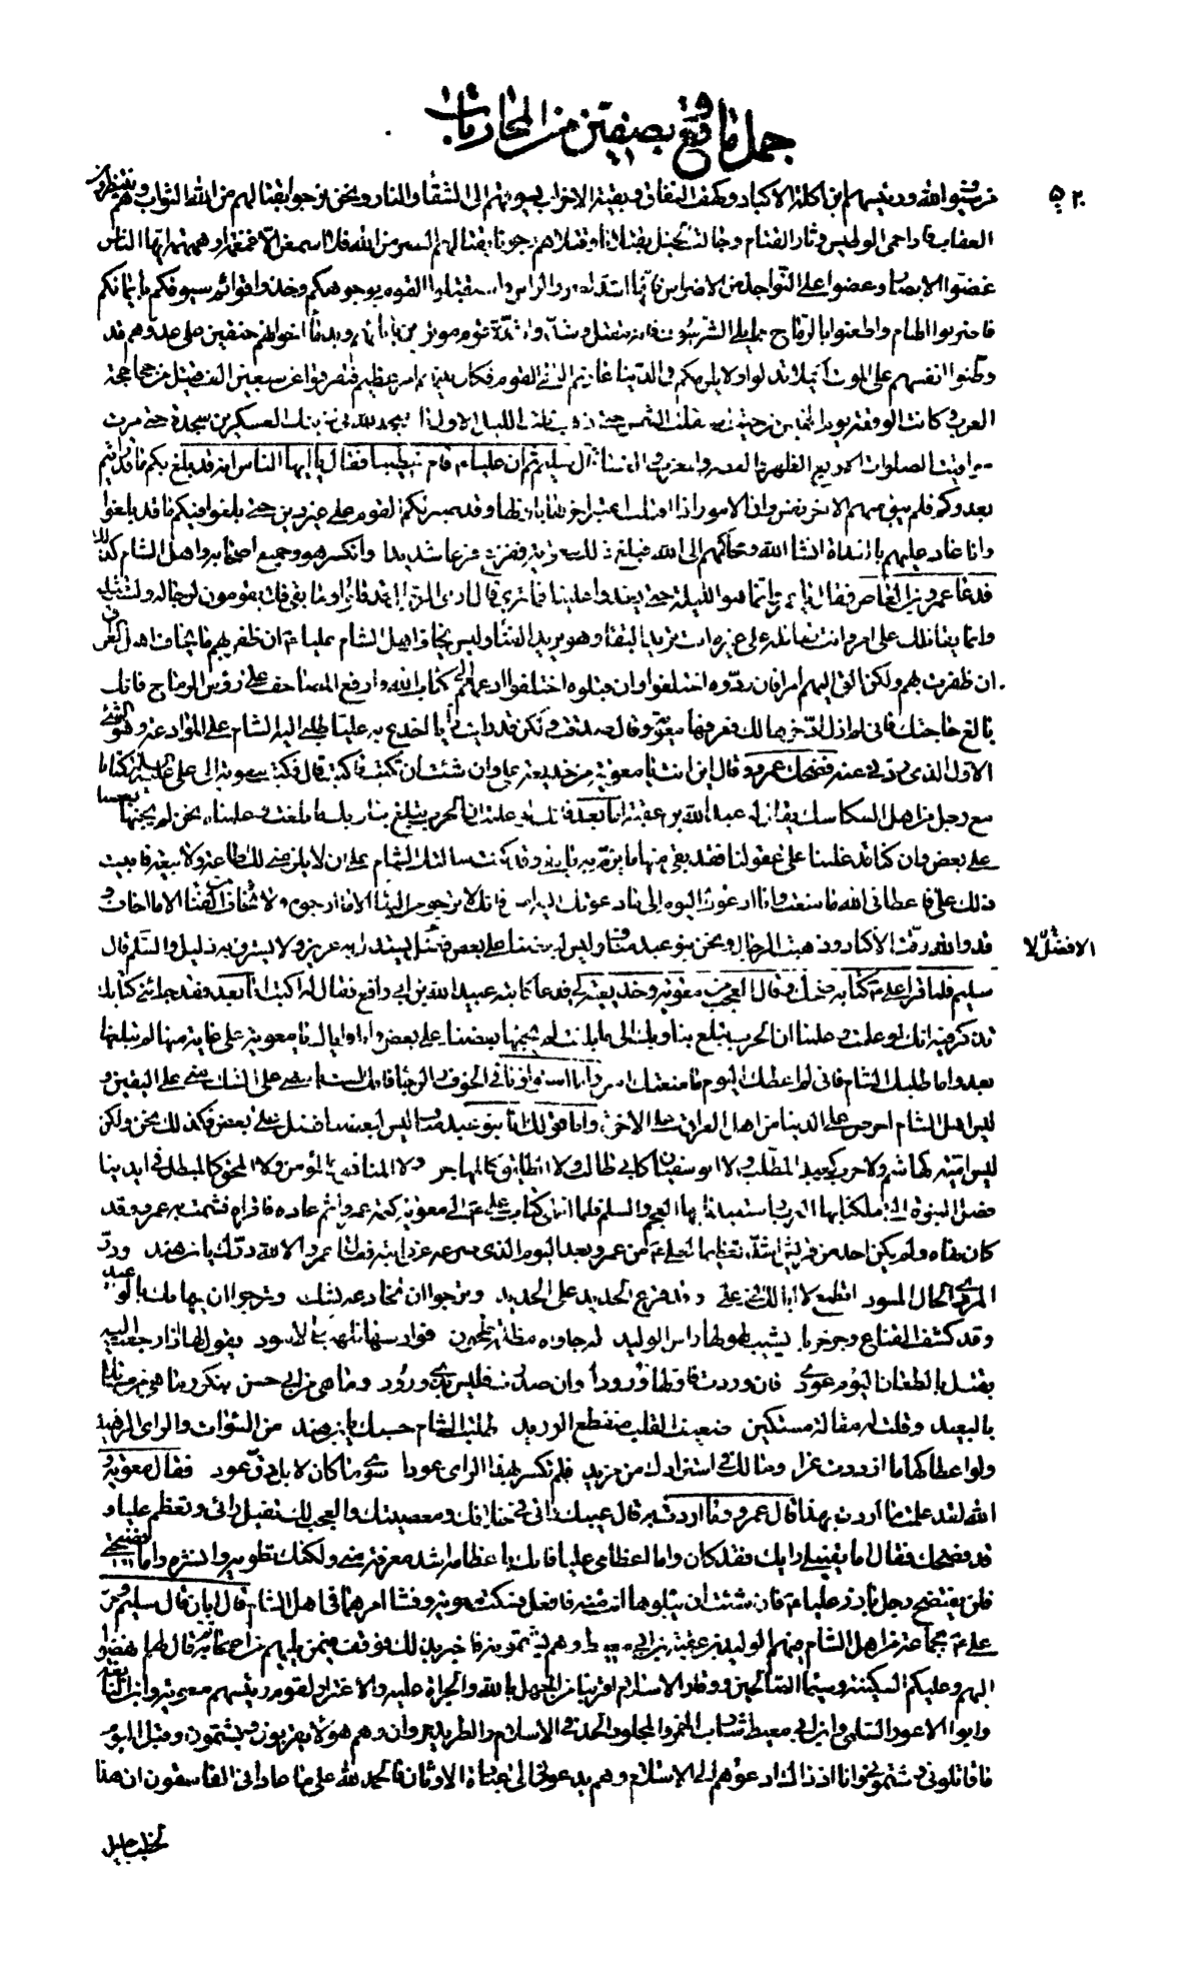 جمل ما وقع بصفين من المحاربات
٥٢٠
ورئيسهم ابن آكلة الاكباد وكهف النفاق وبقية الاحزاب يسوقهم الى الشقاء والنار ونحن نرجو بقتالهم من الله الثواب وهم ينتظرون
العقاب فاذا حمى الوطيس وثار القتام وجالت الخيل بقتلانا وقتلاهم رجونا بقتالهم النصر من الله فلا اسمعن الا غمغمة او همهمة ايها الناس
غضوا الابصار وعضوا على النواجذ من الاضراس فانها اشد الراس واستقبلوا القوم بوجوهكم وخذوا قوائم سيوفكم بايمانكم
فاضربوا الهام واطعنوا بالرماح مما يلى الشرسوف حنقين على عدوهم قد
وطنوا انفسهم على الموت لكيلا تذلوا ولا يلزمكم فى الدنيا عار ثم التقى القوم فكان بينهم امر عظيم فتفرقوا عن سبعين الف قتيل من جحاجحة
العرب وكانت الوقعة يوم الخميس من حيث استقلت الشمس حتى ذهب ثلث الليل الاول ما سجد لله فى ذينك العسكرين سجدة حتى مرت
مواقيت الصلوات الاربع الظهر والعصر والمغرب والعشاء قال سليم ثم ان عليا ع قام خطيبا فقال يا ايها الناس انه قد بلغ بكم ما قد رأيتم
بعدوكم فلم يبق منهم الا اخر نفس وان الامور اذا اقبلت اعتبر اخرها باولها وقد صبر لكم القوم على غير دين حتى بلغوا فيكم ما قد بلغوا
وانا غاد عليهم بالغداة انشاء الله ومحاكمهم الى الله فبلغ ذلك معوية ففزع فزعا شديدا وانكسر هو وجميع اصحابه واهل الشام لذلك
فدعا عمرو بن العاص فقال يا عمرو انما هو الليلة حتى يغدو علينا فما ترى قال ارى الرجال قد قلوا وما بقى فلا يقومون لرجاله ولست مثله
وانما يقاتلك على امر وانت تقاتله على غيره انت تريد البقاء وهو يريد الفناء وليس يخاف اهل الشام عليا ع ان ظفر بهم ما يخاف اهل العراق
ان ظفرت بهم ولكن الق اليهم امرا فان ردوه اختلفوا وان قبلوه اختلفوا ادعهم الى كتاب الله وارفع المصاحف على رؤس الرماح فانك
بالغ حاجتك فانى لم ازل ادخرها لك فعرفها معوية وقال صدقت ولكن قد رايت رأيا اخدع به عليا طلبى اليه الشام على الموادعة وهو الشئ
الاول الذى ردنى عنه فضحك عمرو وقال اين انت يا معوية من خديعة على وان شئت ان تكتب فاكتب قال فكتب معوية الى على عليه السلم كتابا
مع رجل من اهل السكاسك يقال له عبد الله بن عقبة اما بعد فانك لو علمت ان الحرب تبلغ بنا وبك ما بلغت وعلمنا نحن لم يجنها بعضنا
على بعض وان كنا قد غلبنا على عقولنا فقد بقى منها ما وقد كنت سالتك الشام على ان لا يلزمنى لك طاعة ولا بيعة فابيت
ذلك على فاعطانى الله ما منعت وانا ادعوك اليوم الى ما دعوتك اليه امس فانك لا ترجو من البقاء الا ما ارجوه ولا تخاف من الفناء الا ما اخاف و
قد والله رقت الاكباد وذهبت الرجال ونحن بنو عبد مناف وليس لبعضنا على بعض فضل يستذل به عزيز ولا يسترق به ذليل والسلم قال
الا فضل لا
سليم فلما قرا على ع كتابه ضحك وقال العجب من معوية وخديعته لى فدعا كاتبه عبيد الله بن ابى رافع فقال له اكتب اما بعد فقد جاءنى كتابك
تذكر فيه انك لو علمت وعلمنا ان الحرب تبلغ بنا وبك الى ما بلغت لم يجنها بعضنا على بعض وانا واياك يا معوية على غاية منها لم نبلغها
بعد واما طلبك الشام فانى لم اعطك اليوم ما منعتك امس واما استواؤنا فى الخوف والرجاء فانك لست بامضى على الشك منى على اليقين و
ليس اهل الشام احرص على الدنيا من اهل العراق على الاخرة واما قولك انا بنو عبد مناف ليس لبعضنا فضل على بعض فكذلك نحن ولكن
ليس امية كهاشم ولا حرب كعبد المطلب ولا ابو سفيان كابى طالب ولا الطليق كالمهاجر ولا المنافق كالمؤمن ولا المحق كالمبطل فى ايدينا
فضل النبوة التى ملكنا بها العرب واستعبدنا بها العجم والسلم فلما انتهى كتاب على ع الى معوية كتمه عمروا ثم دعاه فاقراه فشمت به عمرو وقد
كان نهاه ولم يكن احد من قريش اشد تعظيما لعلى ع من عمرو بعد اليوم الذى صرعه عن دابته فقال عمرو الا لله درك يا بن هند ودر
المرء الحال المسود اتطمع لا ابا لك فى على وقد قرع الحديد على الحديد وترجو ان تخادعه بشك وترجو ان يهابك بالوعيد
وقد كشف القناع وجر حربا يشيب لهولها راس الوليد له جاواء مظلمة طحون فوارسها تلهب كالاسود يقول لها اذا رجعت اليه
بالطعان اليوم عودى فان وردت فاولها ورودا وان صدت فليس بذى ورود وما هى من ابى حسن بنكر وما هى من مسائك
بالبعيد وقلت له مقالة مستكين ضعيف القلب منقطع الوريد طلبت الشام حسبك يا بن هند من السوآت والراى الزهيد
ولو اعطاكها ما ازددت عزا ومالك فى استزادك من مزيد فلم تكسر بهذا الراى عودا سوى ما كان لا بل دق عود فقال معوية و
الله لقد علمت ما اردت بهذا قال عمرو وما اردت به قال عيبك رائى فى خلافك ومعصيتك والعجب لك تفيل رائى وتعظم عليا و
قد فضحك فقال اما تفييلى رايك فقد كان واما اعظامى عليا فانك باعظامه اشد معرفة منى ولكنك تطويه وانشره واما فضيحتى
فلن يفتضح رجل بارز عليا ع فان شئت ان تبلوها انت منه فافعل فسكت معوية وفشا امرهما فى اهل الشام قال ابان قال سليم ومر
على ع بجماعة من اهل الشام منهم الوليد بن عقبة بن ابى معيط وهم يشتمونه فاخبر بذلك فوقف فيمن يليهم من اصحابه ثم قال لهم انهضوا
اليهم وعليكم السكينة وسيما الصالحين ووقار الاسلام اقربنا من الجهل بالله والجراة عليه والاغترار لقوم رئيسهم معوية وابن النابغة
وابو الاعور السلمى وابن ابى معيط شارب الخمر والمجلود الحد فى الاسلام والطريد مروان وهم هؤلاء يقربون ويشتمون وقبل اليوم
ما قاتلونى وشتمونى وانا اذ ذاك ادعوهم الى الاسلام وهم يدعونى الى عبادة الاوثان فالحمد لله على ما عادانى الفاسقون ان هذا
لخطب جليل